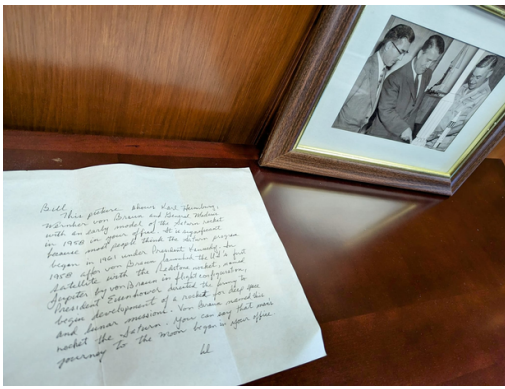 Bill,
This picture shows Karl Heimburg,
Wernher von Braun and General Medaris
with an early model of the Saturn rocket
in 1958 in your office. It is significant
because most people think the Saturn program
began in 1961 under President Kennedy. In
1958 after von Braun launched the US's first
satellite with the Redstone rocket, named
Jupiter by von Braun in flight configuration,
President Eisenhower directed the Army to
begin development of a rocket for deep space
and lunar missions. Von Braun named this
rocket the Saturn. You can say that man's
journey to the moon began in your office.